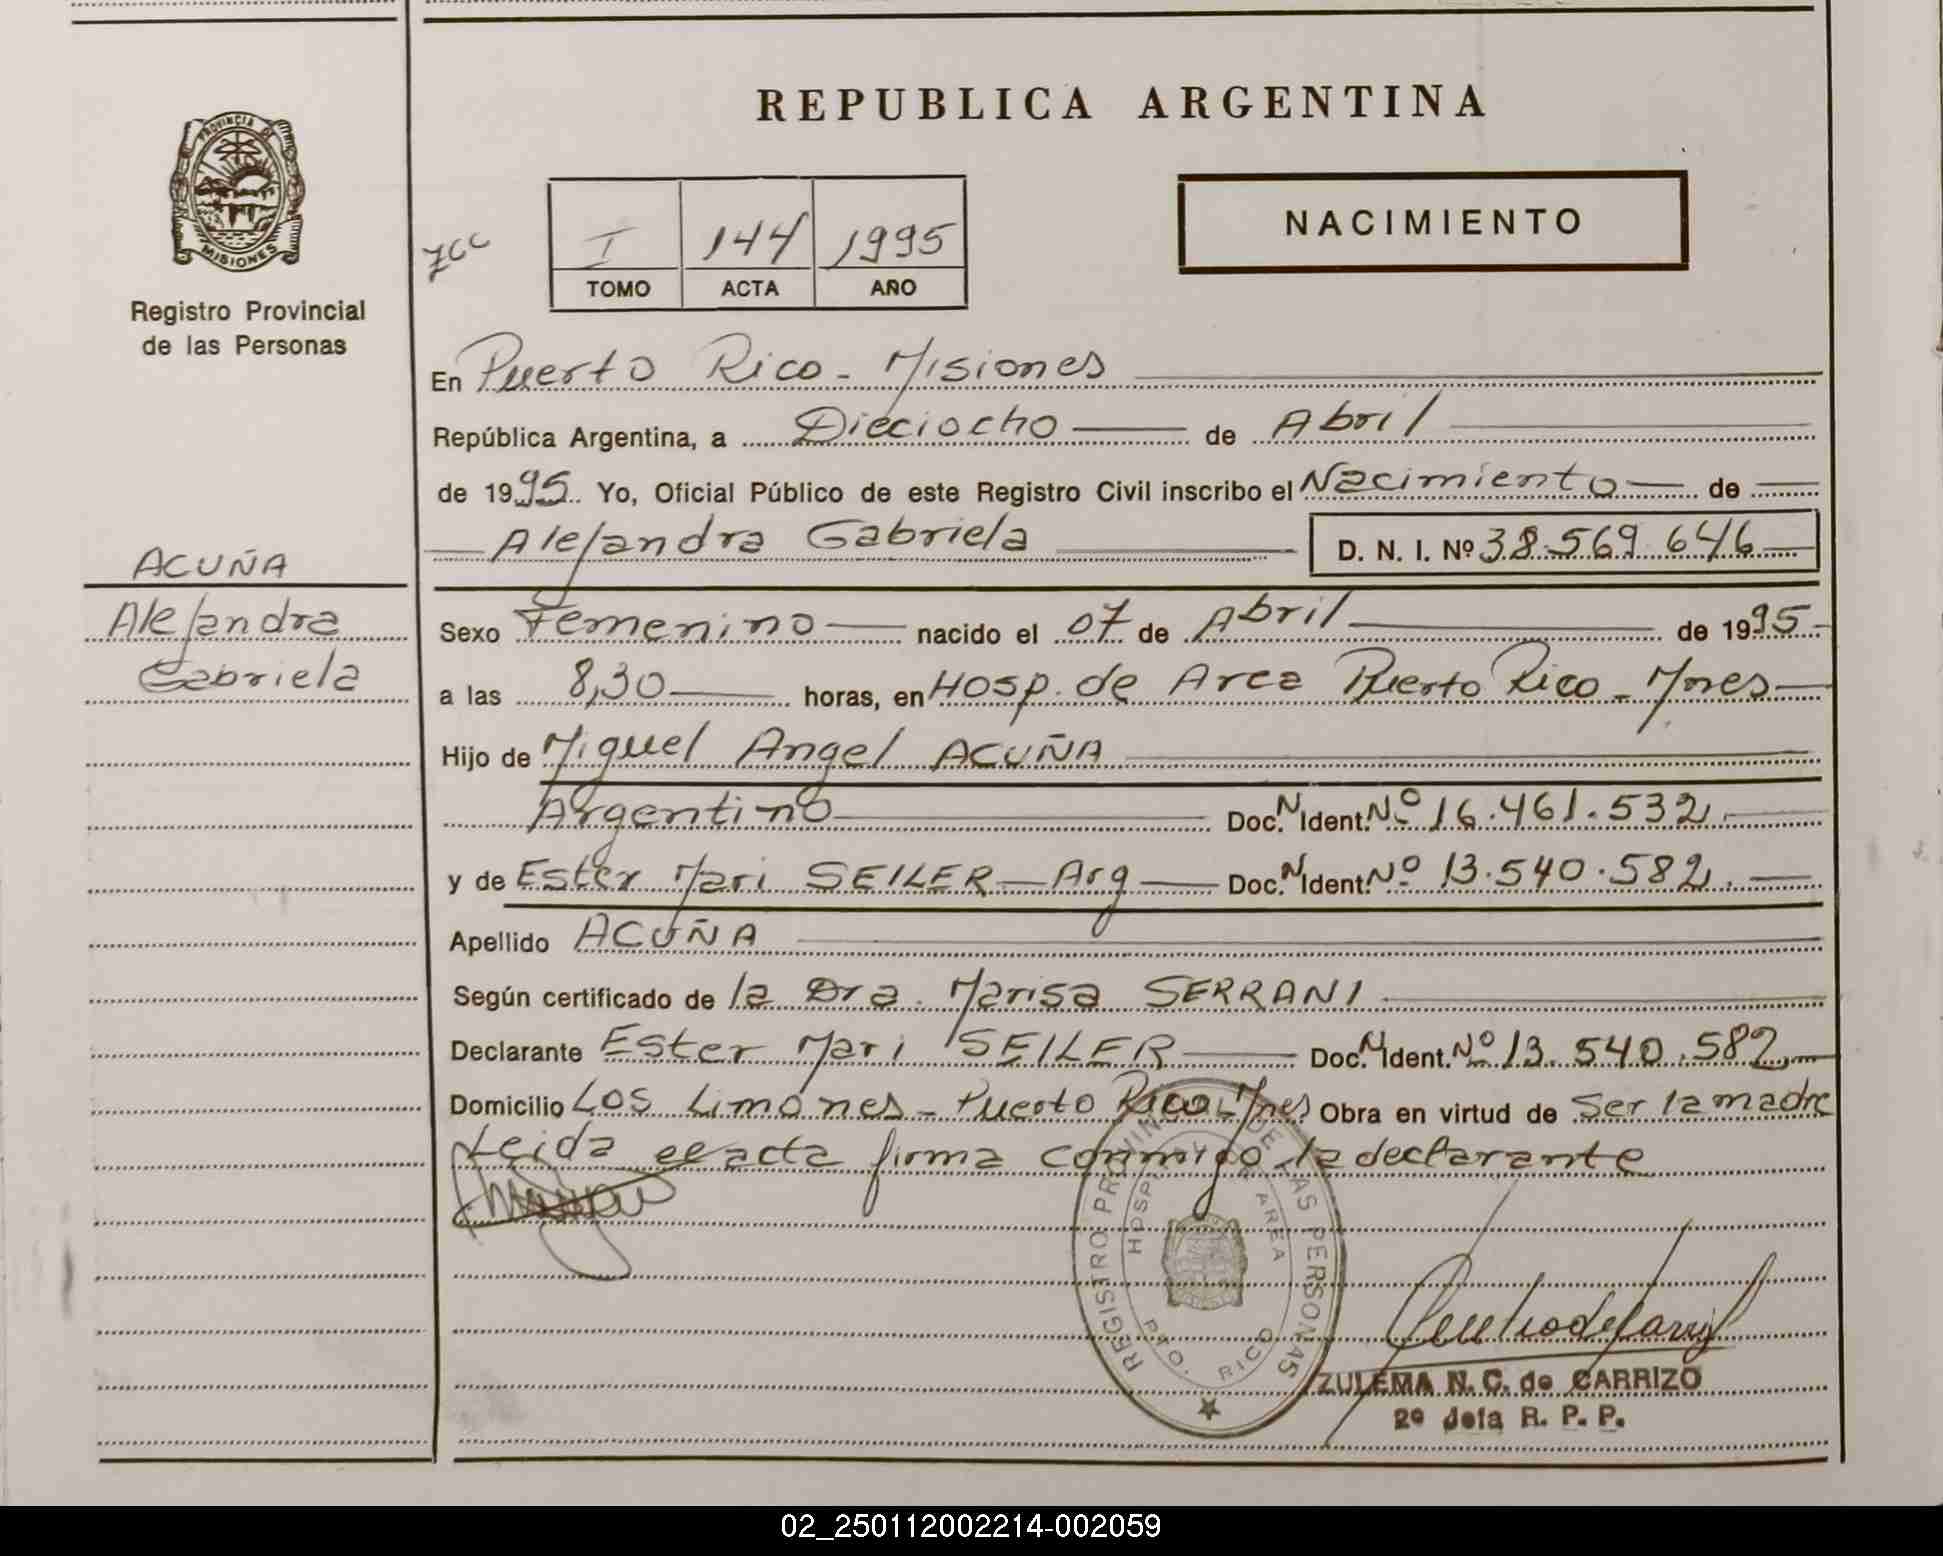 REPUBLICA ARGENTINA
PROVINCIA DE
MISIONES
Registro Provincial
de las Personas
ZCC
I 144 1995
TOMO ACTA AÑO
NACIMIENTO
En Puerto Rico - Misiones
República Argentina, a Dieciocho de Abril
de 1995. Yo, Oficial Público de este Registro Civil inscribo el Nacimiento de
Alejandra Gabriela D. N. I. Nº 38.569.646
ACUÑA
Alejandra
Gabriela
Sexo Femenino nacido el 07 de Abril de 1995
a las 8,30 horas, en Hosp. de Area Puerto Rico - Mnes
Hijo de Miguel Angel ACUÑA
Argentino Doc. N. Ident. Nº 16.461.532
y de Ester Mari SEILER - Arg Doc. N. Ident. Nº 13.540.582
Apellido ACUÑA
Según certificado de la Dra. Marisa SERRANI
Declarante Ester Mari SEILER Doc. N. Ident. Nº 13.540.582
Domicilio Los Limones - Puerto Rico - Mnes Obra en virtud de Ser la madre
Leida el acta firma conmigo la declarante
REGISTRO PROVINCIAL DE LAS PERSONAS
HOSPITAL DE AREA
PTO. RICO
ZULEMA N. C. de CARRIZO
2º Jefa R. P. P.
02_250112002214-002059